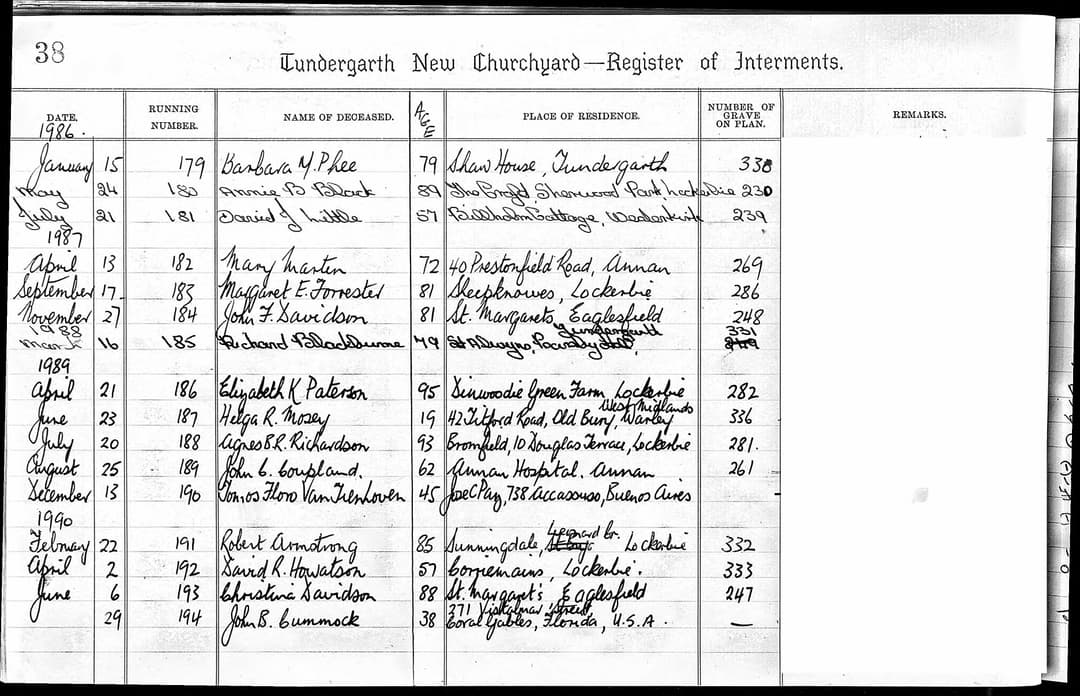 38
Tundergarth New Churchyard—Register of Interments.
DATE. RUNNING NUMBER. NAME OF DECEASED. AGE PLACE OF RESIDENCE. NUMBER OF GRAVE ON PLAN. REMARKS.
1986.
January 15 179 Barbara M. Phee 79 Shaw House, Tundergarth 338
May 24 180 Annie B Black 89 Sherwood Park Lockerbie 230
July 21 181 David J Little 57 Cottage, 239
1987
April 13 182 Mary Marten 72 40 Prestonfield Road, Annan 269
September 17 183 Margaret E. Forrester 81 Sleepknowes, Lockerbie 286
November 27 184 John F. Davidson 81 St. Margarets, Eaglesfield 248
1988 Tundergarth 331
March 16 185 Richard Blackburne 79
1989
April 21 186 Elizabeth K Paterson 95 Dinwoodie Green Farm, Lockerbie 282
West Midlands
June 23 187 Helga R. Mosey 19 42 Titford Road, Old Bury, Warley 336
July 20 188 Agnes B.R. Richardson 93 Bromfield, 10 Douglas Terrace, Lockerbie 281.
August 25 189 John C. Coupland. 62 Annan Hospital. Annan 261
December 13 190 Tomos Floro Van Tienhoven 45 Jose C Paz, 738 Accassuso, Buenos Aires —
1990
Leonard Cr.
February 22 191 Robert Armstrong 85 Sunningdale, Lockerbie 332
April 2 192 David R. Howatson 57 Corriemains, Lockerbie. 333
June 6 193 Christina Davidson 88 St. Margaret's Eaglesfield 247
371 Street
29 194 John B. Cummock 38 Coral Gables, Florida, U.S.A. —